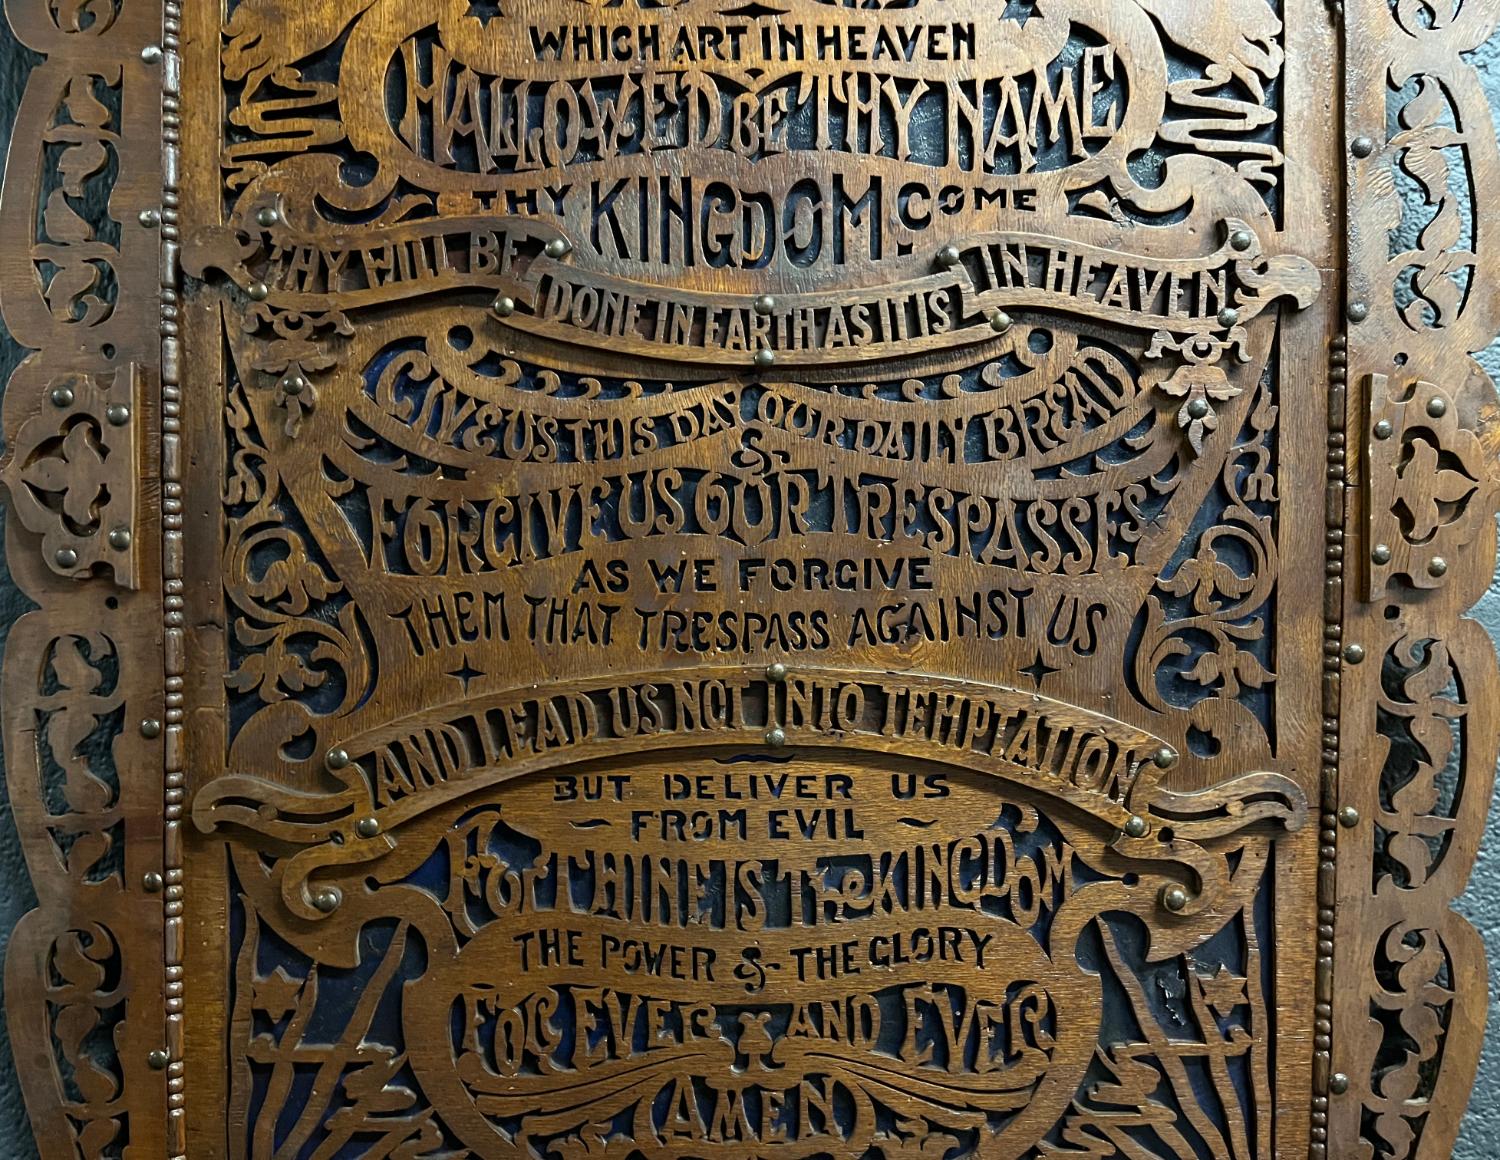 WHICH ART IN HEAVEN
HALLOWED BE THY NAME
THY KINGDOM COME
THY WILL BE
DONE IN EARTH AS IT IS
IN HEAVEN
GIVE US THIS DAY OUR DAILY BREAD
&
FORGIVE US OUR TRESPASSES
AS WE FORGIVE
THEM THAT TRESPASS AGAINST US
AND LEAD US NOT INTO TEMPTATION
BUT DELIVER US
FROM EVIL
FOR THINE IS THE KINGDOM
THE POWER & THE GLORY
FOR EVER AND EVER
AMEN